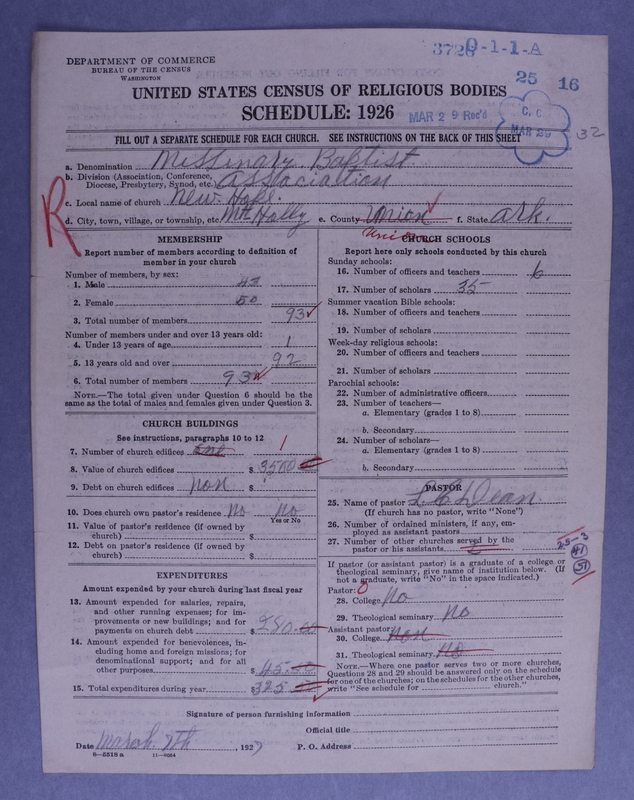 3720 0-1-1-A
DEPARTMENT OF COMMERCE
BUREAU OF THE CENSUS
WASHINGTON
25 16
UNITED STATES CENSUS OF RELIGIOUS BODIES
SCHEDULE: 1926
MAR 29 Rec'd
C. C.
MAR 29
32
FILL OUT A SEPARATE SCHEDULE FOR EACH CHURCH. SEE INSTRUCTIONS ON THE BACK OF THIS SHEET
a. Denomination Missinary Baptist
b. Division (Association, Conference, Diocese, Presbytery, Synod, etc.) Association
c. Local name of church New Hope
d. City, town, village, or township, etc. Mt Holly e. County Union f. State Ark.
R
Union
MEMBERSHIP
Report number of members according to definition of
member in your church
Number of members, by sex:
1. Male 43
2. Female 50
3. Total number of members 93
Number of members under and over 13 years old:
4. Under 13 years of age 1
5. 13 years old and over 92
6. Total number of members 93
NOTE.—The total given under Question 6 should be the
same as the total of males and females given under Question 3.
CHURCH BUILDINGS
See instructions, paragraphs 10 to 12
7. Number of church edifices one 1
8. Value of church edifices $ 3500
9. Debt on church edifices non $
10. Does church own pastor's residence No No
Yes or No
11. Value of pastor's residence (if owned by
church) $
12. Debt on pastor's residence (if owned by
church) $
EXPENDITURES
Amount expended by your church during last fiscal year
13. Amount expended for salaries, repairs,
and other running expenses; for im-
provements or new buildings; and for
payments on church debt $ 280.00
14. Amount expended for benevolences, in-
cluding home and foreign missions; for
denominational support; and for all
other purposes $ 45.00
15. Total expenditures during year $ 325.00
CHURCH SCHOOLS
Report here only schools conducted by this church
Sunday schools:
16. Number of officers and teachers 6
17. Number of scholars 35
Summer vacation Bible schools:
18. Number of officers and teachers
19. Number of scholars
Week-day religious schools:
20. Number of officers and teachers
21. Number of scholars
Parochial schools:
22. Number of administrative officers
23. Number of teachers—
a. Elementary (grades 1 to 8)
b. Secondary
24. Number of scholars—
a. Elementary (grades 1 to 8)
b. Secondary
PASTOR
25. Name of pastor Dean
(If church has no pastor, write "None")
26. Number of ordained ministers, if any, em-
ployed as assistant pastors
27. Number of other churches served by the
pastor or his assistants
25-3
41
51
If pastor (or assistant pastor) is a graduate of a college or
theological seminary, give name of institution below. (If
not a graduate, write "No" in the space indicated.)
Pastor: 0
28. College No
29. Theological seminary No
Assistant pastor:
30. College Non
31. Theological seminary No
NOTE.—Where one pastor serves two or more churches,
Questions 28 and 29 should be answered only on the schedule
for one of the churches; on the schedules for the other churches,
write "See schedule for church."
Signature of person furnishing information
Official title
Date March 7th, 1927 P. O. Address
8—5518a 11—8064